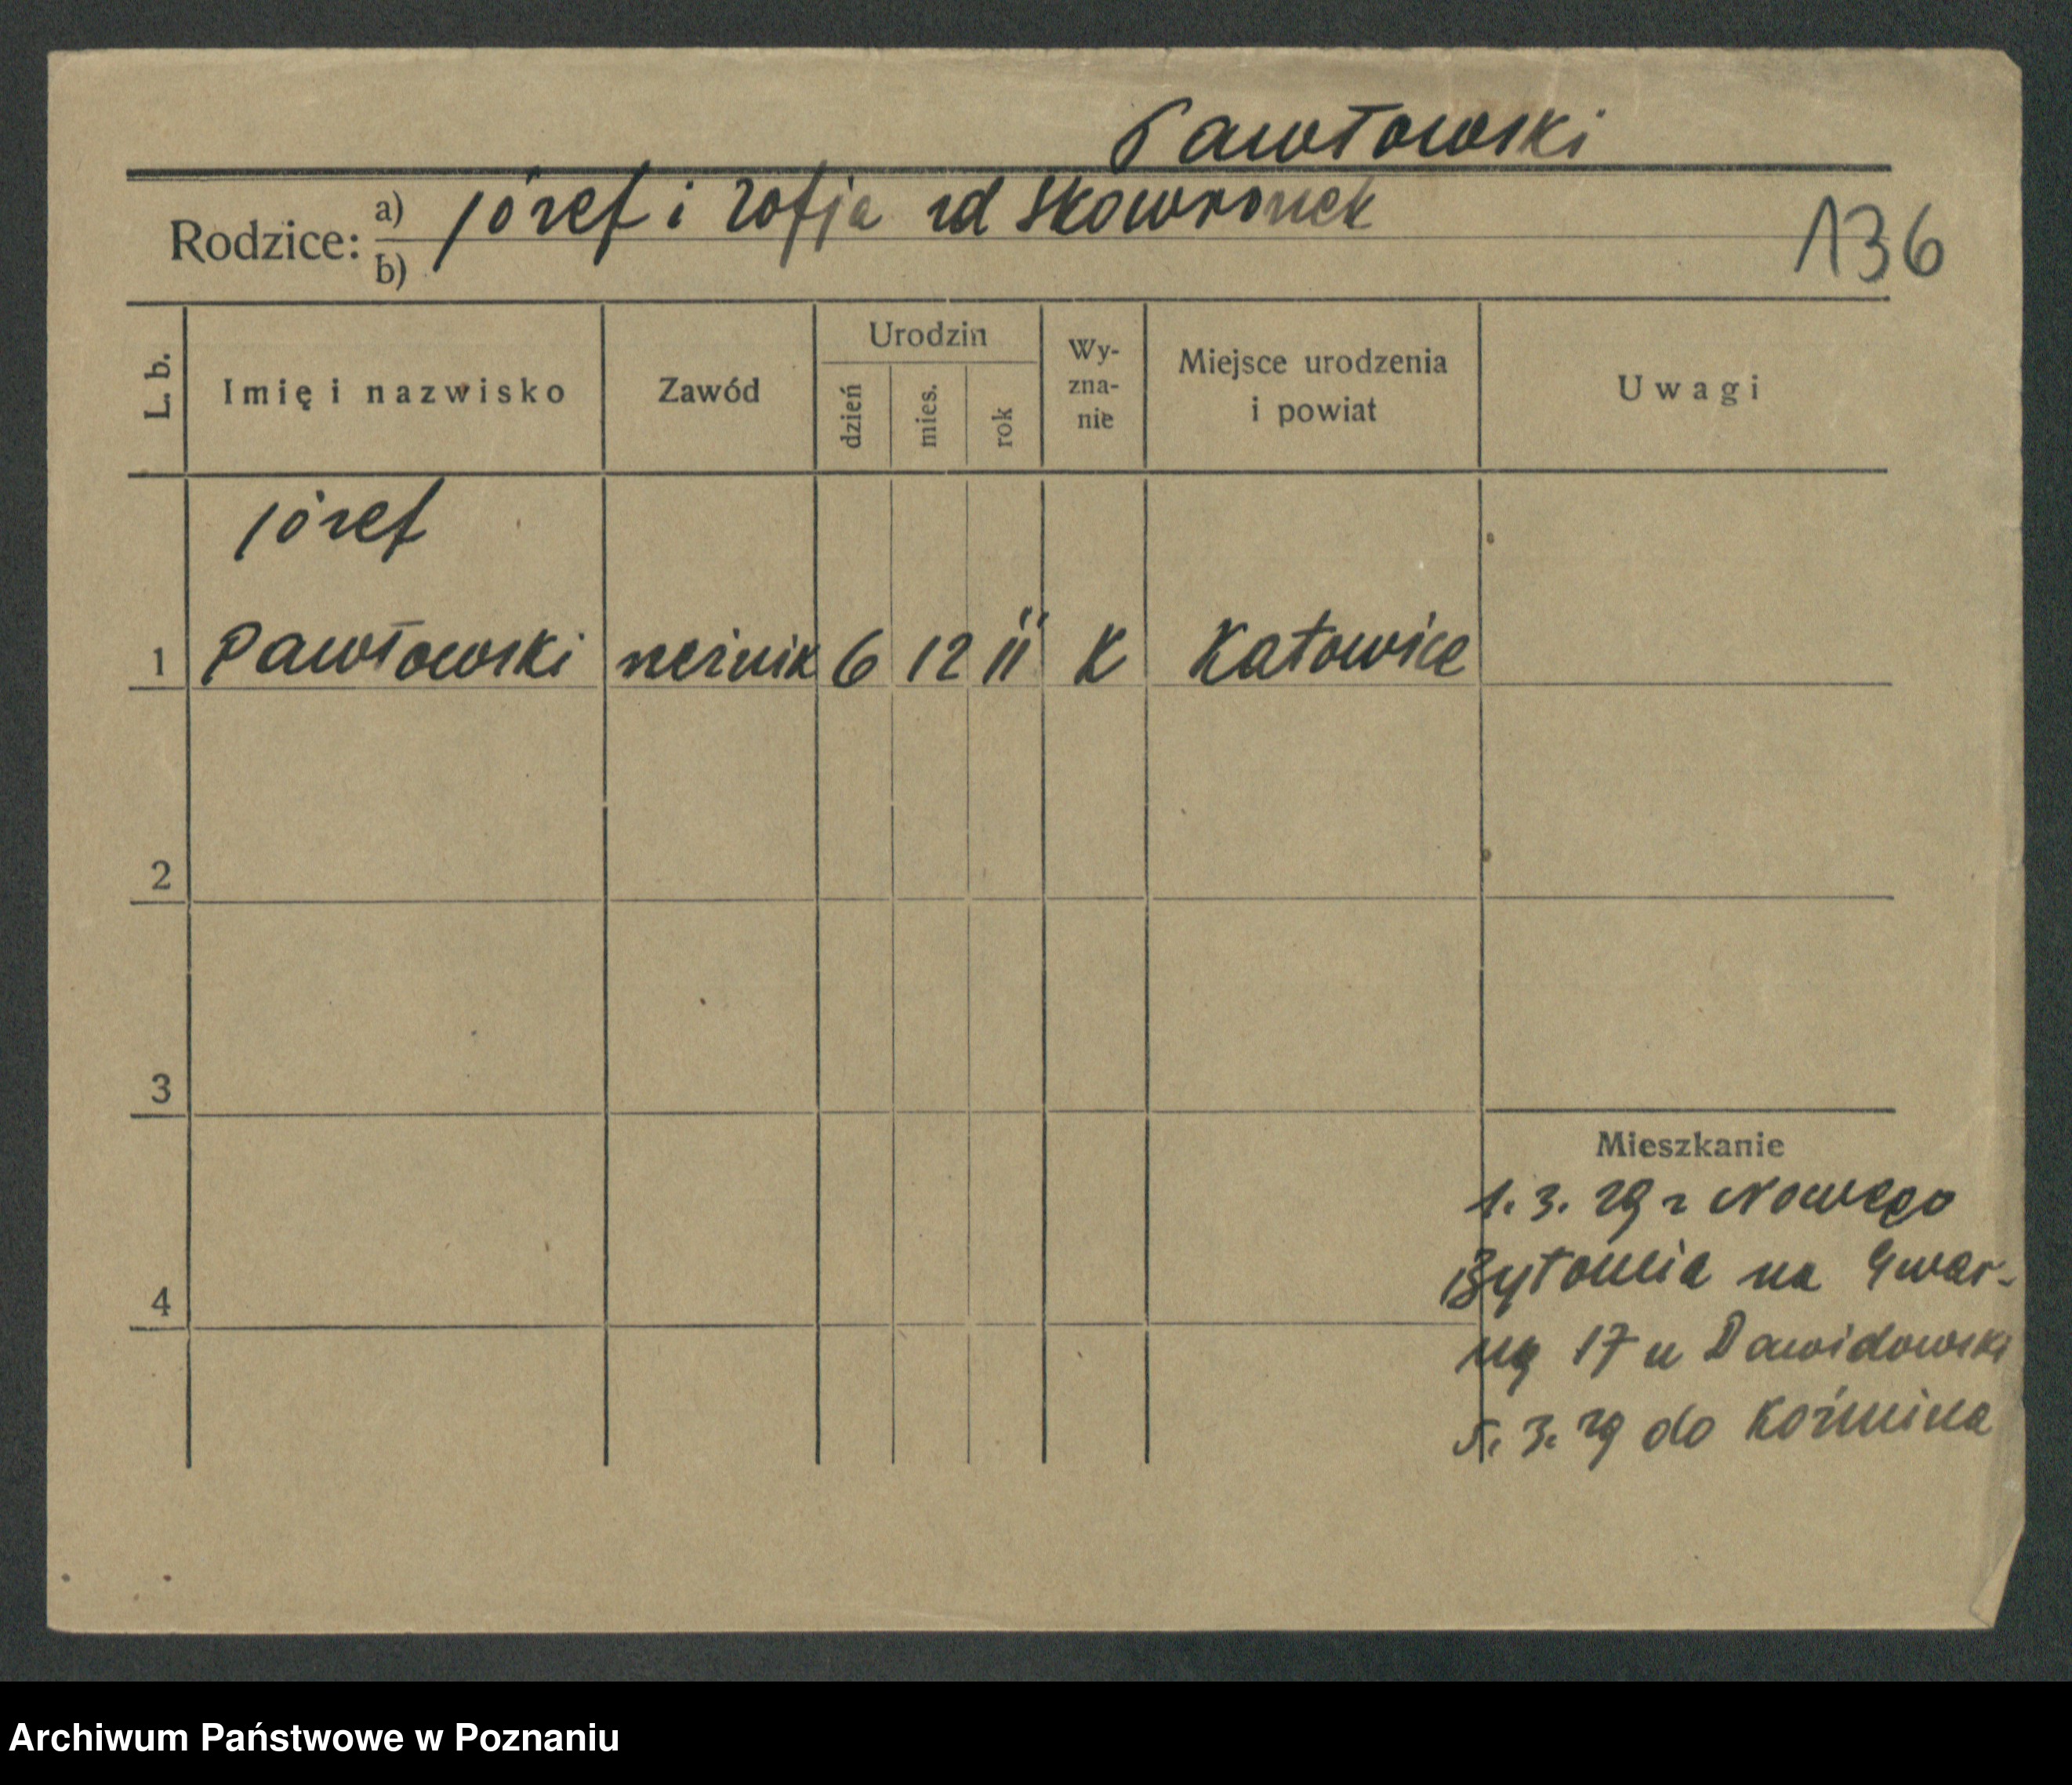 Pawłowski
Rodzice: a) Józef i Zofja zd Skowronek
b)
136
L. b.
Imię i nazwisko
Zawód
Urodzin
dzień
mies.
rok
Wy-
zna-
nie
Miejsce urodzenia
i powiat
Uwagi
Józef
1 Pawłowski rzeźnik 6 12 11 K Katowice
2
3
Mieszkanie
1. 3. 29 z Nowego
Bytomia na Gwar-
ną 17 u Dawidowski
4
5. 3. 29 do Koźmina
Archiwum Państwowe w Poznaniu